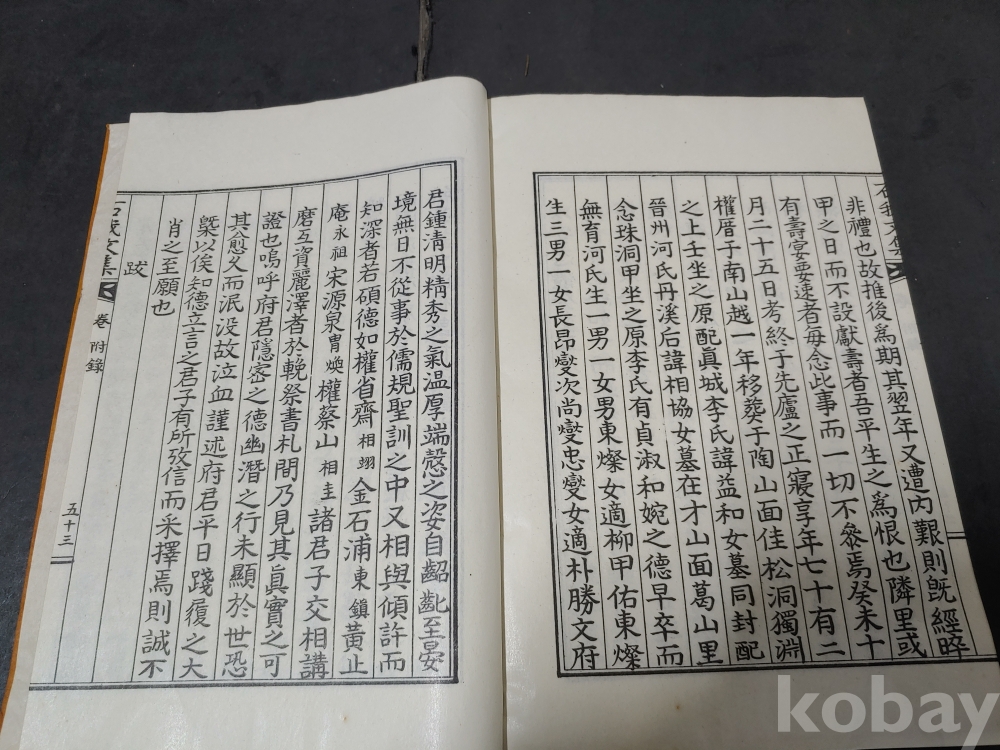 非禮也故推後爲期其翌年又遭內艱則旣經晬
甲之日而不設獻壽者吾平生之爲恨也隣里或
有壽宴要速者每念此事而一切不參焉癸未十
月二十五日考終于先廬之正寢享年七十有二
權厝于南山越一年移葬于陶山面佳松洞獨淵
之上壬坐之原配眞城李氏諱益和女墓同封配
晉州河氏丹溪后諱相協女墓在才山面葛山里
念珠洞甲坐之原李氏有貞淑和婉之德早卒而
無育河氏生一男一女男東燦女適柳甲佑東燦
生三男一女長昂燮次尚燮忠燮女適朴勝文府
君鍾淸明精秀之氣溫厚端慤之姿自齠齔至晏
境無日不從事於儒規聖訓之中又相與傾許而
知深者若碩德如權省齋相翊金石浦東鎭黃止
庵永祖宋源泉胄煥權蔡山相圭諸君子交相講
磨互資麗澤者於輓祭書札間乃見其眞實之可
證也嗚呼府君隱密之德幽潛之行未顯於世恐
其愈久而泯没故泣血謹述府君平日踐履之大
槩以俟知德立言之君子有所攷信而采擇焉則誠不
肖之至願也
跋
文集
卷 附錄
五十三
kobay